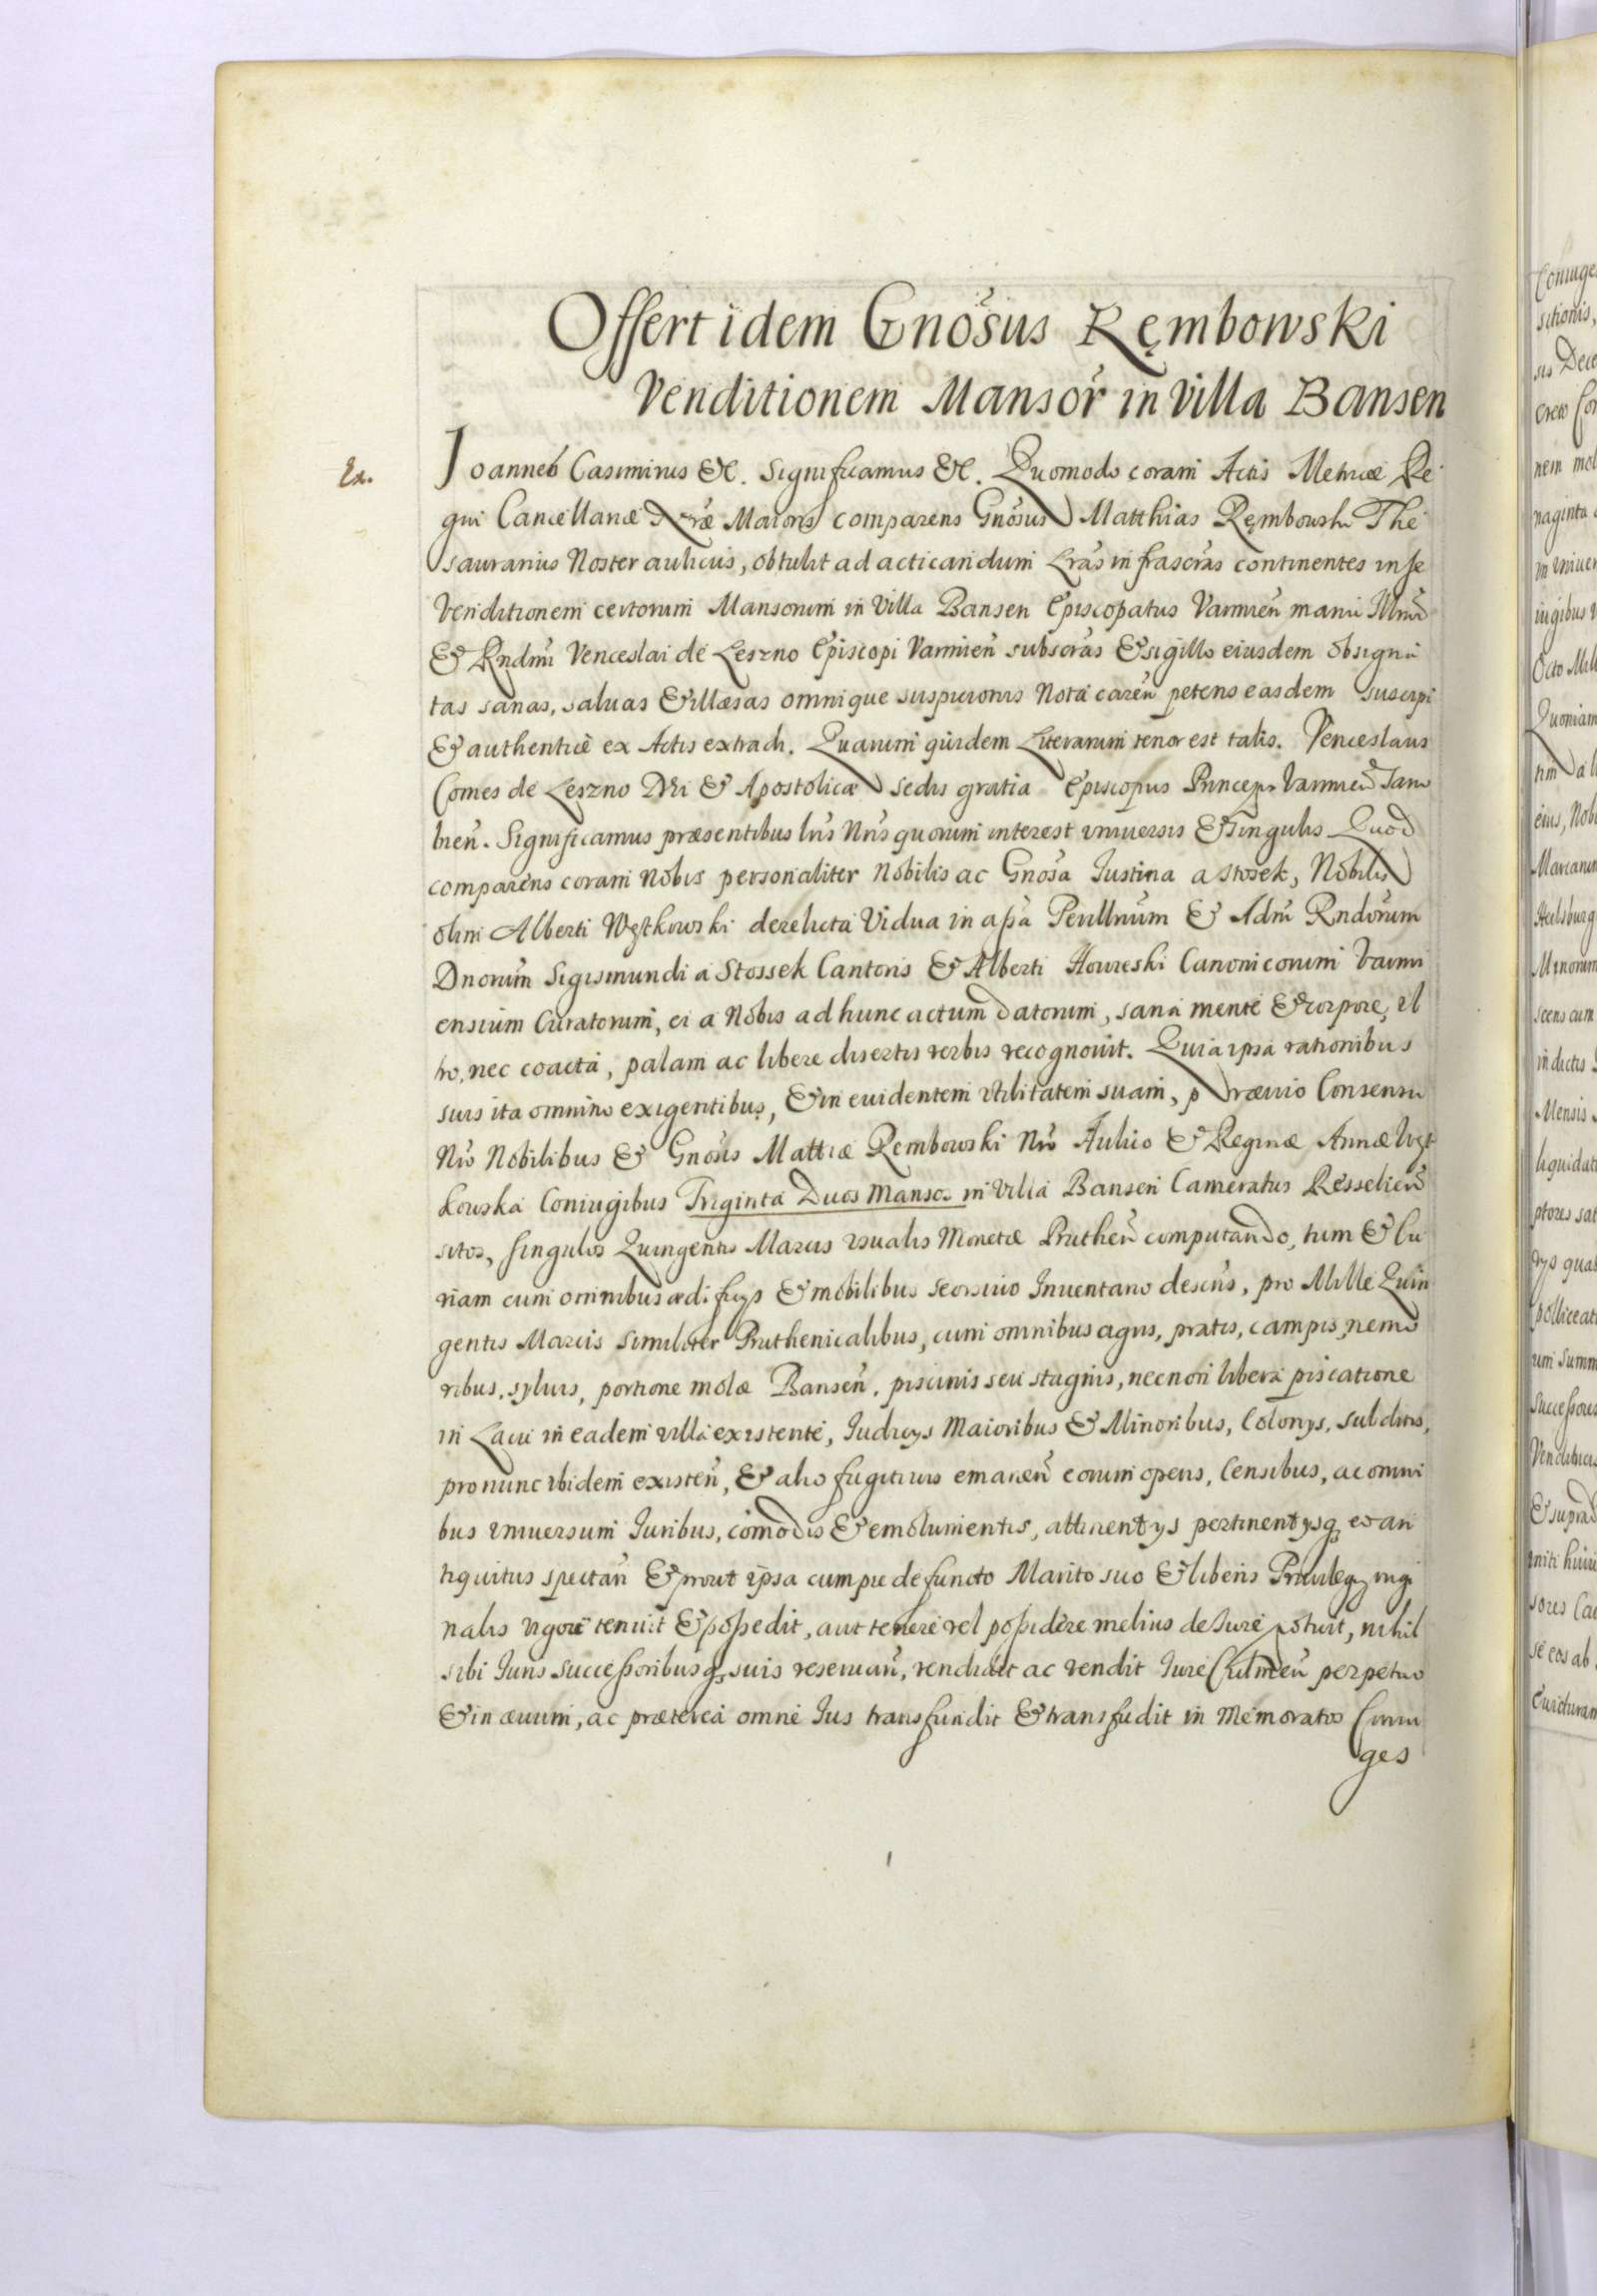 Offert idem Gnosus Rembowski
Venditionem Mansor in Villa Bansen
Ex.
Ioannes Casimirus &c. Significamus &c. Quomodo coram Actis Metricæ Re
gni Cancellariæ Nræ Maioris comparens Gnosus Matthias Rembowski The
saurarius Noster aulicus, obtulit ad acticandum Lras infrascras continentes in se
Venditionem certorum Mansorum in Villa Bansen Episcopatus Varmien manu Illmi
& Rndmi Venceslai de Leszno Episcopi Varmien subscras & sigillo eiusdem obsigna
tas sanas, saluas & illæsas omnique suspicionis nota caren petens easdem suscipi
& authentice ex Actis extradi. Quarum quidem Literarum tenor est talis. Venceslaus
Comes de Leszno Dei & Apostolicæ Sedis gratia Episcopus Princeps Varmien Sam
bien. Significamus præsentibus lris Nris quorum interest vniuersis & singulis Quod
comparens coram nobis personaliter Nobilis ac Gnosa Iustina a Stosek, Nobilis
olim Alberti Węzkowski derelicta Vidua in assa Perillrium & Adm Rndorum
Dnorum Sigismundi a Stossek Cantoris & Alberti Nowieski Canonicorum Varmi
ensium Curatorum, ei a Nobis ad hunc actum datorum, sana mente & corpore, vl
tro, nec coacta, palam ac libere disertis verbis recognouit. Quia ipsa rationibus
suis ita omnino exigentibus, & in euidentem vtilitatem suam, præuio Consensu
Nro Nobilibus & Gnosis Mattiæ Rembowski Nro Aulico & Reginæ Annæ Węz
kowska Coniugibus Triginta Duos Mansos in Villa Bansen Cameratus Resselien
sitos, singulos Quingentis Marcis vsualis Monetæ Pruthen computando, tum & Cu
riam cum omnibus ædificijs & mobilibus seorsiuo Inuentario descris, pro Mille Quin
gentis Marcis similiter Pruthenicalibus, cum omnibus agris, pratis, campis, nemo
ribus, syluis, portione molæ Bansen, piscinis seu stagnis, necnon libera piscatione
in Lacu in eadem villa existente, Iudicijs Maioribus & Minoribus, Colonys, subditis,
pro nunc ibidem existen, & alio fugitiuis emanen eorum operis, Censibus, ac omni
bus vniuersim Iuribus, comodis & emolumentis, attinentys pertinentysq eo an
tiquitus spectan & prout ipsa cum pie defuncto Marito suo & liberis Priuilegij origi
nalis vigore tenuit & possedit, aut tenere vel possidere melius de Iure potuit, nihil
sibi Iuris successoribusq suis reseruan, vendidit ac vendit Iure Culmen perpetuo
& in æuum, ac præterea omne Ius transfundit & transfudit in Memoratos Coniu
ges